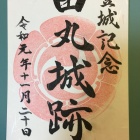 登城記念
田丸城跡
令和元年十一月二十日